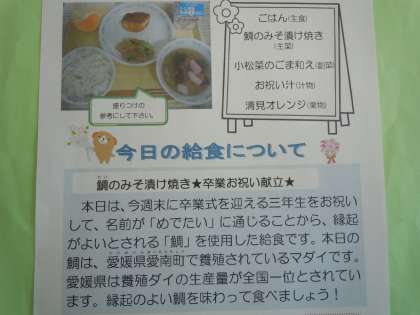 ごはん(主食)
鯛のみそ漬け焼き
(主菜)
小松菜のごま和え(副菜)
お祝い汁(汁物)
清見オレンジ(果物)
盛りつけの
参考にして下さい。
今日の給食について
鯛のみそ漬け焼き★卒業お祝い献立★
本日は、今週末に卒業式を迎える三年生をお祝い
して、名前が「めでたい」に通じることから、縁起
がよいとされる「鯛」を使用した給食です。本日の
鯛は、愛媛県愛南町で養殖されているマダイです。
愛媛県は養殖ダイの生産量が全国一位とされてい
ます。縁起のよい鯛を味わって食べましょう！